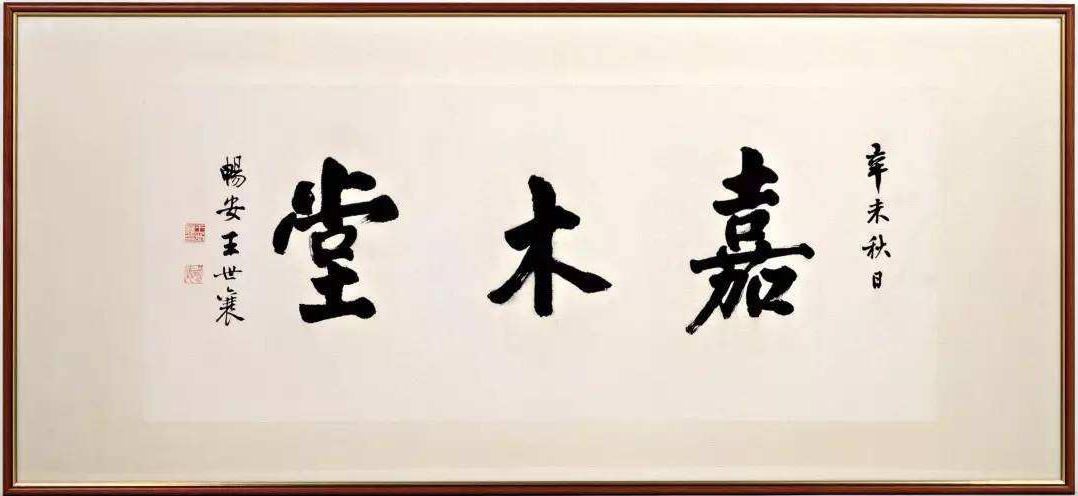 辛未秋日
嘉木堂
暢安王世襄